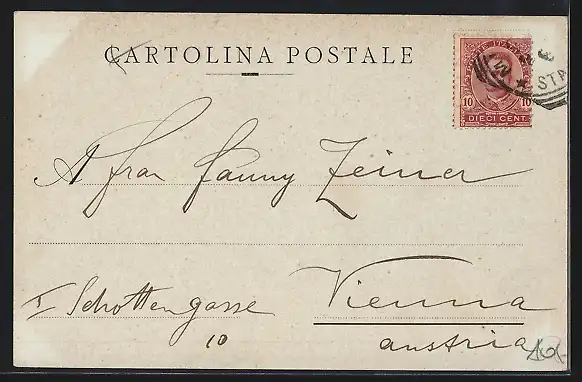 CARTOLINA POSTALE
POSTE ITALIANE
10 10
DIECI CENT
STA
A Frau Fanny Zeiner
I Schottengasse
10
Vienna
Austria